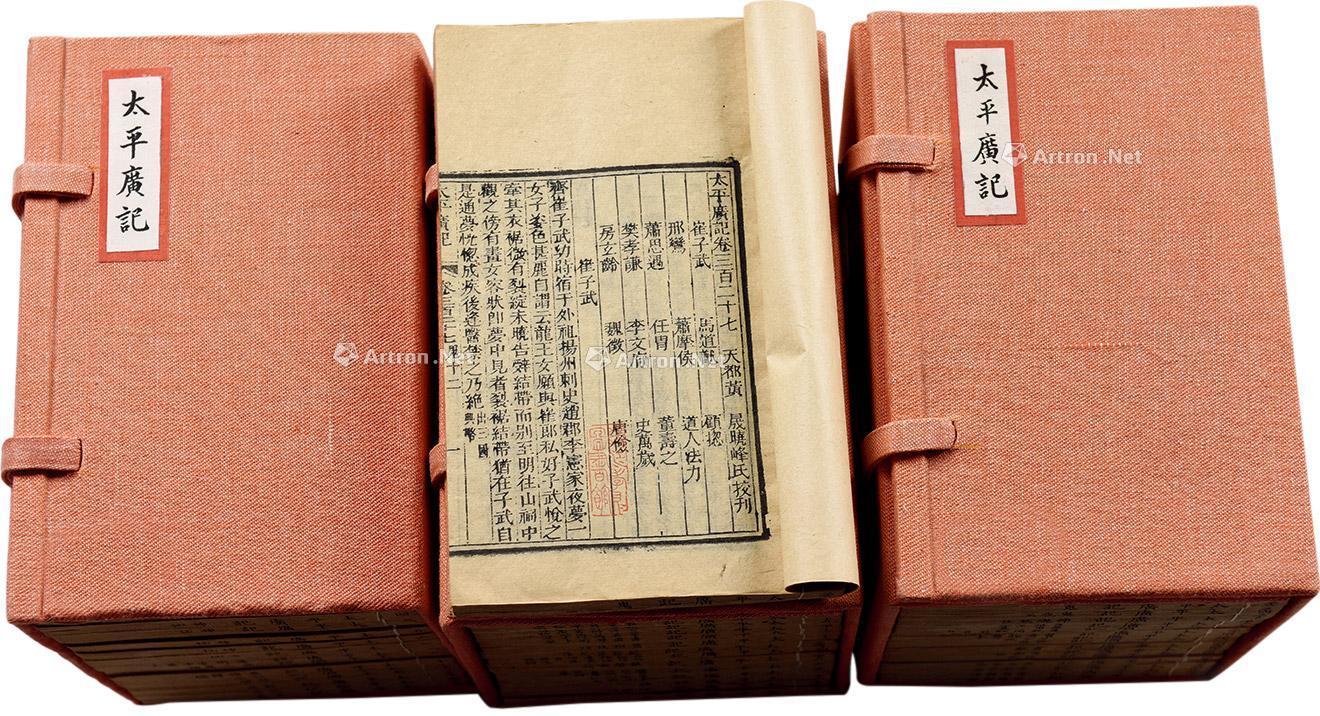 太平廣記
太平廣記卷三百二十七
天都黃 晟曉峰氏校刊
崔子武 馬道猷 顧揔
邢鸞 蕭摩侯 道人法力
蕭思遇 任胄 董壽之
樊孝謙 李文府 史萬歲
房玄齡 魏徵 唐儉
崔子武
齊崔子武幼時宿于外祖揚州刺史趙郡李憲家夜夢一
女子姿色甚麗自謂云龍王女願與崔郎私好子武悅之
牽其衣裾微有裂綻未曉告辭結帶而別至明往山祠中
觀之傍有畫女容狀卽夢中見者裂裾結帶猶在子武自
是通夢恍惚成疾後逢醫禁之乃絕出三國典畧
太平廣記 卷三百二十七 鬼十二 一
太平廣記
Artron.Net
Artron.Net
Artron.Net